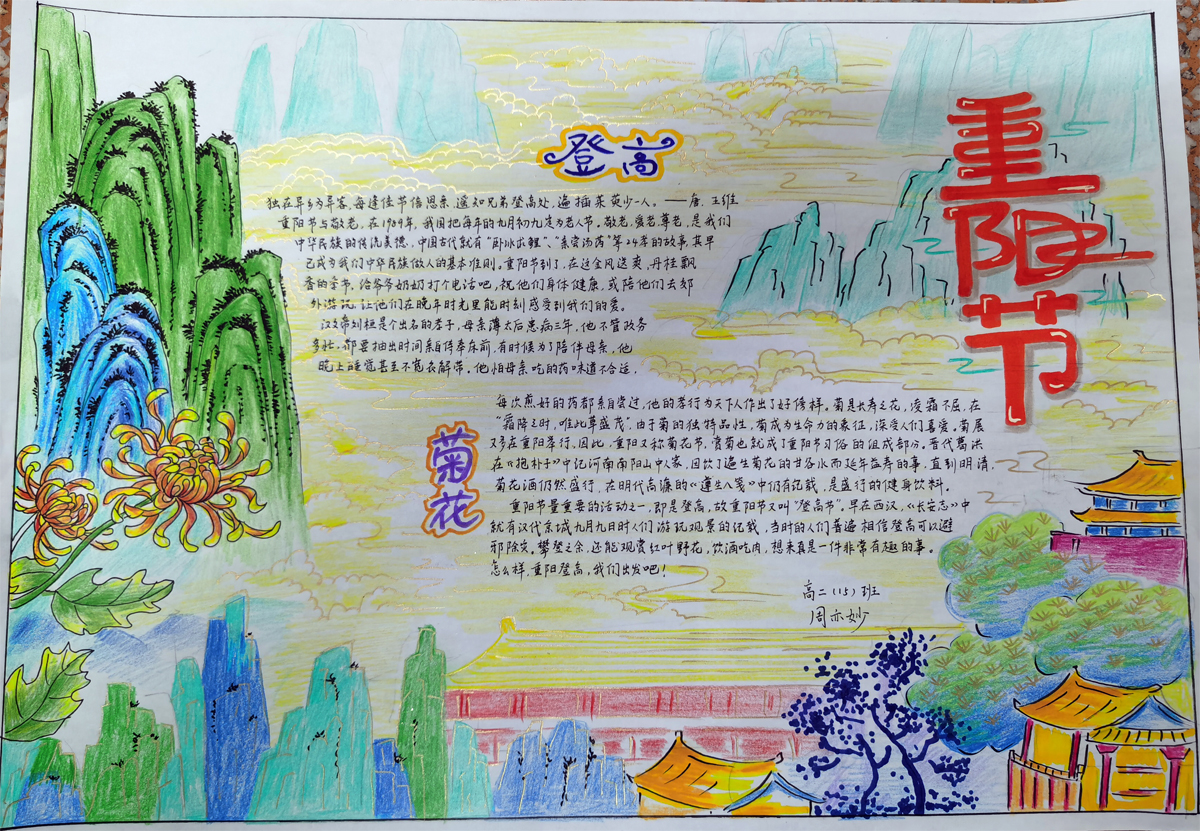 重阳节
登高
独在异乡为异客,每逢佳节倍思亲,遥知兄弟登高处,遍插茱萸少一人。——唐.王维
重阳节与敬老,在1989年,我国把每年的九月初九定为老人节。敬老,爱老,尊老,是我们
中华民族的传统美德,中国古代就有“卧冰求鲤”、“亲尝汤药”等24孝的故事,其早
已成为我们中华民族做人的基本准则。重阳节到了,在这金风送爽,丹桂飘
香的季节,给爷爷奶奶打个电话吧,祝他们身体健康,或陪他们去郊
外游玩,让他们在晚年时光里能时刻感受到我们的爱。
汉文帝刘桓是个出名的孝子,母亲薄太后患病三年,他不管政务
多忙,都要抽出时间亲自侍奉床前,有时候为了陪伴母亲,他
晚上睡觉甚至不宽衣解带。他怕母亲吃的药味道不合适,
菊花
每次煎好的药都亲自尝过,他的孝行为天下人作出了好榜样。菊是长寿之花,凌霜不屈,在
“霜降之时,唯此草盛茂”,由于菊的独特品性,菊成为生命力的象征,深受人们喜爱。菊展
又多在重阳举行,因此,重阳又称菊花节,赏菊也就成了重阳节习俗的组成部分。晋代葛洪
在《抱朴子》中记河南南阳山中人家,因饮了遍生菊花的甘谷水而延年益寿的事,直到明清,
菊花酒仍然盛行,在明代高濂的《遵生八笺》中仍有记载,是盛行的健身饮料。
重阳节最重要的活动之一,即是登高,故重阳节又叫“登高节”。早在西汉,《长安志》中
就有汉代京城九月九日时人们游玩观景的记载,当时的人们普遍相信登高可以避
邪除灾。攀登之余,还能观赏红叶野花,饮酒吃肉,想来真是一件非常有趣的事。
怎么样,重阳登高,我们出发吧!
高二(15)班
周亦妙